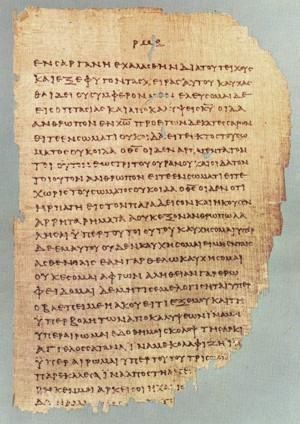 ενϲαργανηεχαλαϲθηνδιατουτειχουϲ
καιεξεφυγονταϲχειραϲαυτουκαυχαϲ
θαιδειουϲυμφερονμενελευϲομαιδε
ειϲοπταϲιαϲκαιαποκαλυψειϲκ̅υ̅οιδα
ανθρωπονενχ̅ρ̅ω̅προετωνδεκατεϲϲαρων
ειτεενϲωματιουκοιδαειτεεκτοϲτουϲω
ματοϲουκοιδαοθ̅ϲ̅οιδεναρπαγεντατον
τοιουτονεωϲτριτουουρανουκαιοιδατον
τοιουτονανθρωπονειτεενϲωματιειτε
χωριϲτουϲωματοϲουκοιδαοθ̅ϲ̅οιδενοτι
ηρπαγηειϲτονπαραδειϲονκαιηκουϲεν
αρρηταρηματααουκεξονανθρωπωλα
ληϲαιϋπερτουτοιουτουκαυχηϲομαιϋπερ
δεεμαυτουουδενκαυχηϲομαιειμηενταιϲ
αϲθενειαιϲεανγαρθελωκαυχηϲομαι
ουκεϲομαιαφρωναληθειανγαρερω
φειδομαιδεμητιϲεμελογιϲηταιϋπερ
οβλεπειμεηακουειτιεξεμουκαιτη
ϋπερβοληтωναποκαλυψεωνϊναμη
ϋπεραιρωμαιεδοθημοιϲκολοψτηϲαρκι
αγγελοϲϲαταναϊναμεκολαφιζηϊναμη
ϋπεραιρωμαιϋπερτουτουτριϲτον
παρεκαλεϲαϊνααποϲτηαπ
ρηκενμοιαρκειϲοιηχαριϲ